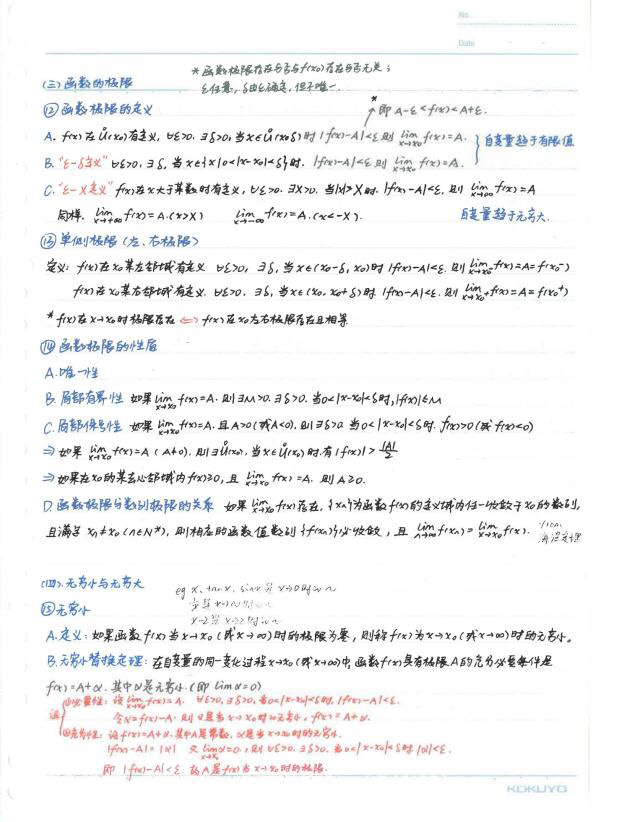 No.
Date
(三)函数的极限
*函数极限存在与否与f(x₀)存在与否无关；
ε任意，δ由ε确定，但不唯一.
⑫函数极限的定义
*即 A-ε<f(x)<A+ε.
A. f(x)在Ů(x₀)有定义, ∀ε>0. ∃δ>0, 当x∈Ů(x₀δ)时 |f(x)-A|<ε 则 lim x→x₀ f(x)=A. } 自变量趋于有限值
B. "ε-δ定义" ∀ε>0, ∃δ, 当x∈{x|0<|x-x₀|<δ}时. |f(x)-A|<ε 则 lim x→x₀ f(x)=A.
C. "ε-X定义" f(x)在x大于某数时有定义, ∀ε>0. ∃X>0. 当|x|>X时. |f(x)-A|<ε. 则 lim x→∞ f(x)=A
同样. lim x→+∞ f(x)=A.(x>X) lim x→-∞ f(x)=A.(x<-X). 自变量趋于无穷大.
⑬单侧极限（左、右极限）
定义: f(x)在x₀某左邻域有定义 ∀ε>0, ∃δ, 当x∈(x₀-δ, x₀)时 |f(x)-A|<ε. 则 lim x→x₀⁻ f(x)=A=f(x₀⁻)
f(x)在x₀某右邻域有定义. ∀ε>0, ∃δ, 当x∈(x₀, x₀+δ)时. |f(x)-A|<ε. 则 lim x→x₀⁺ f(x)=A=f(x₀⁺)
* f(x)在x→x₀时极限存在 ⟺ f(x)在x₀左右极限存在且相等
⑭函数极限的性质
A.唯一性
B. 局部有界性 如果 lim x→x₀ f(x)=A. 则∃M>0. ∃δ>0. 当0<|x-x₀|<δ时, |f(x)|≤M
C. 局部保号性 如果 lim x→x₀ f(x)=A. 且A>0(或A<0), 则∃δ>0 当0<|x-x₀|<δ时. f(x)>0(或f(x)<0)
⇒ 如果 lim x→x₀ f(x)=A (A≠0). 则∃Ů(x₀), 当x∈Ů(x₀)时 有|f(x)|>|A|/2
⇒ 如果在x₀的某去心邻域内f(x)≥0, 且 lim x→x₀ f(x)=A. 则A≥0.
D. 函数极限与数列极限的关系 如果 lim x→x₀ f(x)存在, {xₙ}为函数f(x)的定义域内任一收敛于x₀的数列,
且满足 xₙ≠x₀ (n∈N*), 则相应的函数值数列{f(xₙ)}必收敛, 且 lim n→∞ f(xₙ)=lim x→x₀ f(x).
(四). 无穷小与无穷大
eg x、tanx、sinx是x→0时
x-2是x→2时
⑮无穷小
A.定义: 如果函数f(x)当x→x₀(或x→∞)时的极限为零, 则称f(x)为x→x₀(或x→∞)时的无穷小.
B.无穷小替换定理: 在自变量的同一变化过程x→x₀(或x→∞)中 函数f(x)具有极限A的充分必要条件是
f(x)=A+α. 其中α是无穷小.(即limα=0)
证 ①必要性: 设 lim x→x₀ f(x)=A. ∀ε>0, ∃δ>0, 当0<|x-x₀|<δ时, |f(x)-A|<ε.
令α=f(x)-A. 则α是当x→x₀时无穷小, f(x)=A+α.
②充分性: 设f(x)=A+α. 其中A是常数, α是当x→x₀时的无穷小.
|f(x)-A|=|α| 又 lim x→x₀ α=0, 则∀ε>0. ∃δ>0. 当0<|x-x₀|<δ时 |α|<ε.
即 |f(x)-A|<ε. 故A是f(x)当x→x₀时的极限.
KOKUYO